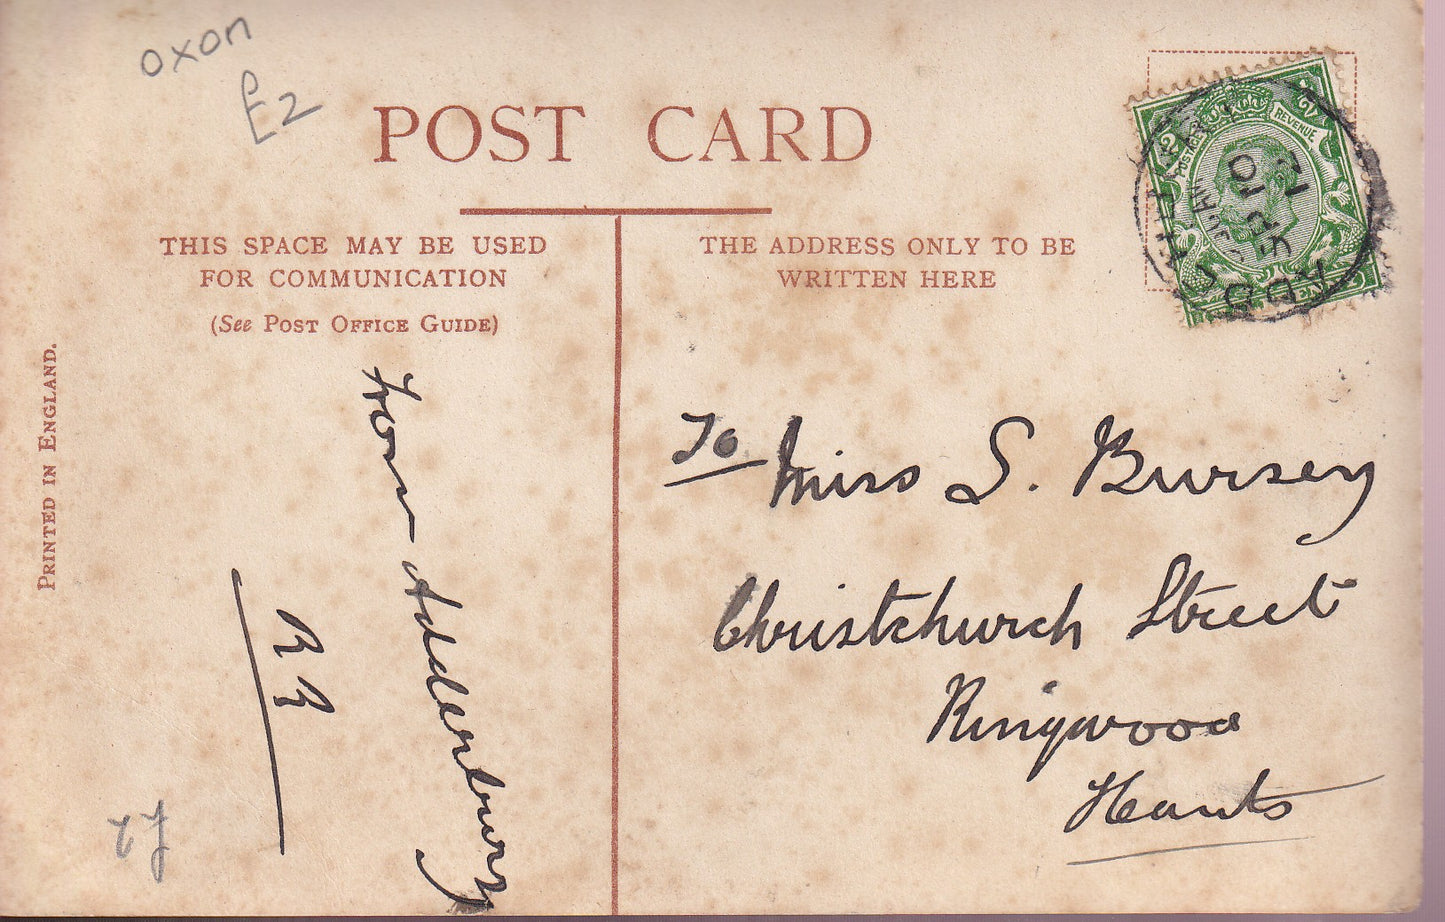 oxon
£2
POST CARD
THIS SPACE MAY BE USED
FOR COMMUNICATION
(See POST OFFICE GUIDE)
PRINTED IN ENGLAND.
From Adderbury
THE ADDRESS ONLY TO BE
WRITTEN HERE
POSTAGE
REVENUE
SP 10
12
To Miss S. Bursey
Christchurch Street
Ringwood
Hants